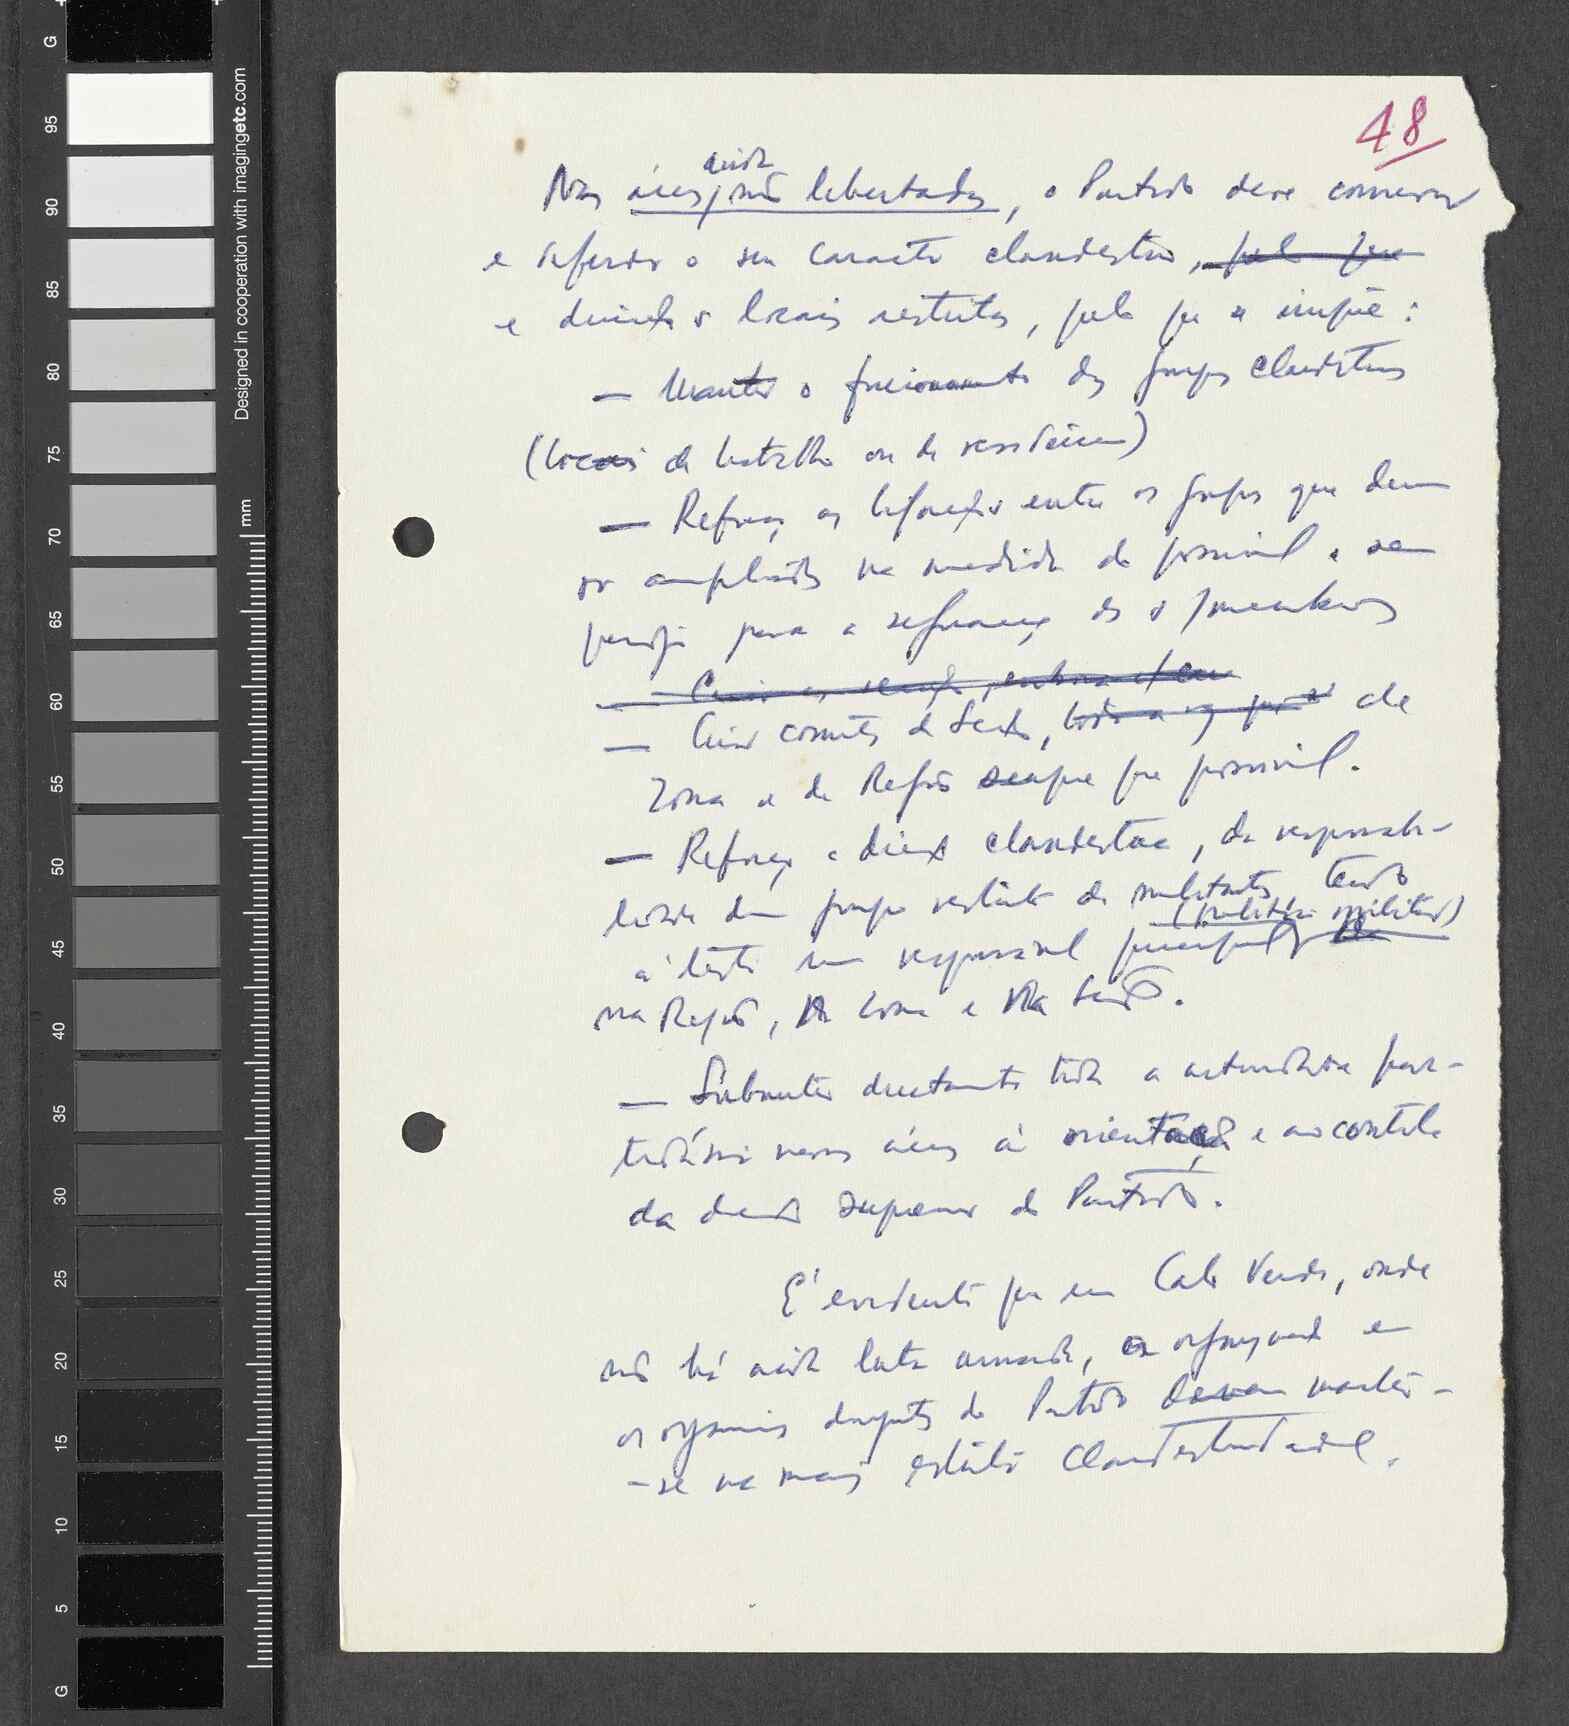 48
Nas áreas ainda não libertadas, o Partido deve conservar
e defender o seu carácter clandestino, pelo que
e locais restritos, pelo que se impõe:
— Manter o funcionamento dos grupos clandestinos
(locais de trabalho ou de residência)
— Reforçar as ligações entre os grupos que devem
ser ampliados na medida do possível e sem
perigo para a segurança dos s/membros
— Criar
— Criar comités de Secção, de
Zona e de Região sempre que possível.
— Reforçar a direcção clandestina, da responsabi-
lidade dum grupo restrito de militantes, tendo
à testa um responsável principal (político militar)
na Região, na Zona e na Secção.
— Submeter directamente toda a actividade par-
tidária nessas áreas à orientação e ao controle
da direcção superior do Partido.
É evidente que em Cabo Verde, onde
não há ainda luta armada, a organização e
os organismos dirigentes do Partido devem manter-
-se na mais estrita clandestinidade.
G
95
90
85
80
75
70
65
60
55
50
45
40
35
30
25
20
15
10
5
G
mm
Designed in cooperation with imagingetc.com